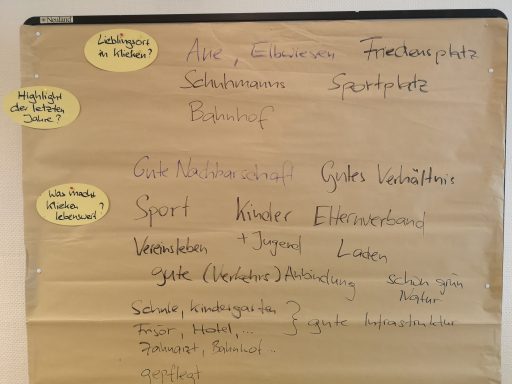 Neuland
Lieblingsort
in Klieken?
Aue, Elbwiesen Friedensplatz
Schuhmanns Sportplatz
Bahnhof
Highlight
der letzten
Jahre?
Gute Nachbarschaft Gutes Verhältnis
Was macht
Klieken
lebenswert?
Sport Kinder Elternverband
+ Jugend
Vereinsleben Laden
gute (Verkehrs) Anbindung schön grün
Natur
Schule, Kindergarten
Frisör, Hotel, ... } gute Infrastruktur
Zahnarzt, Bahnhof ...
gepflegt